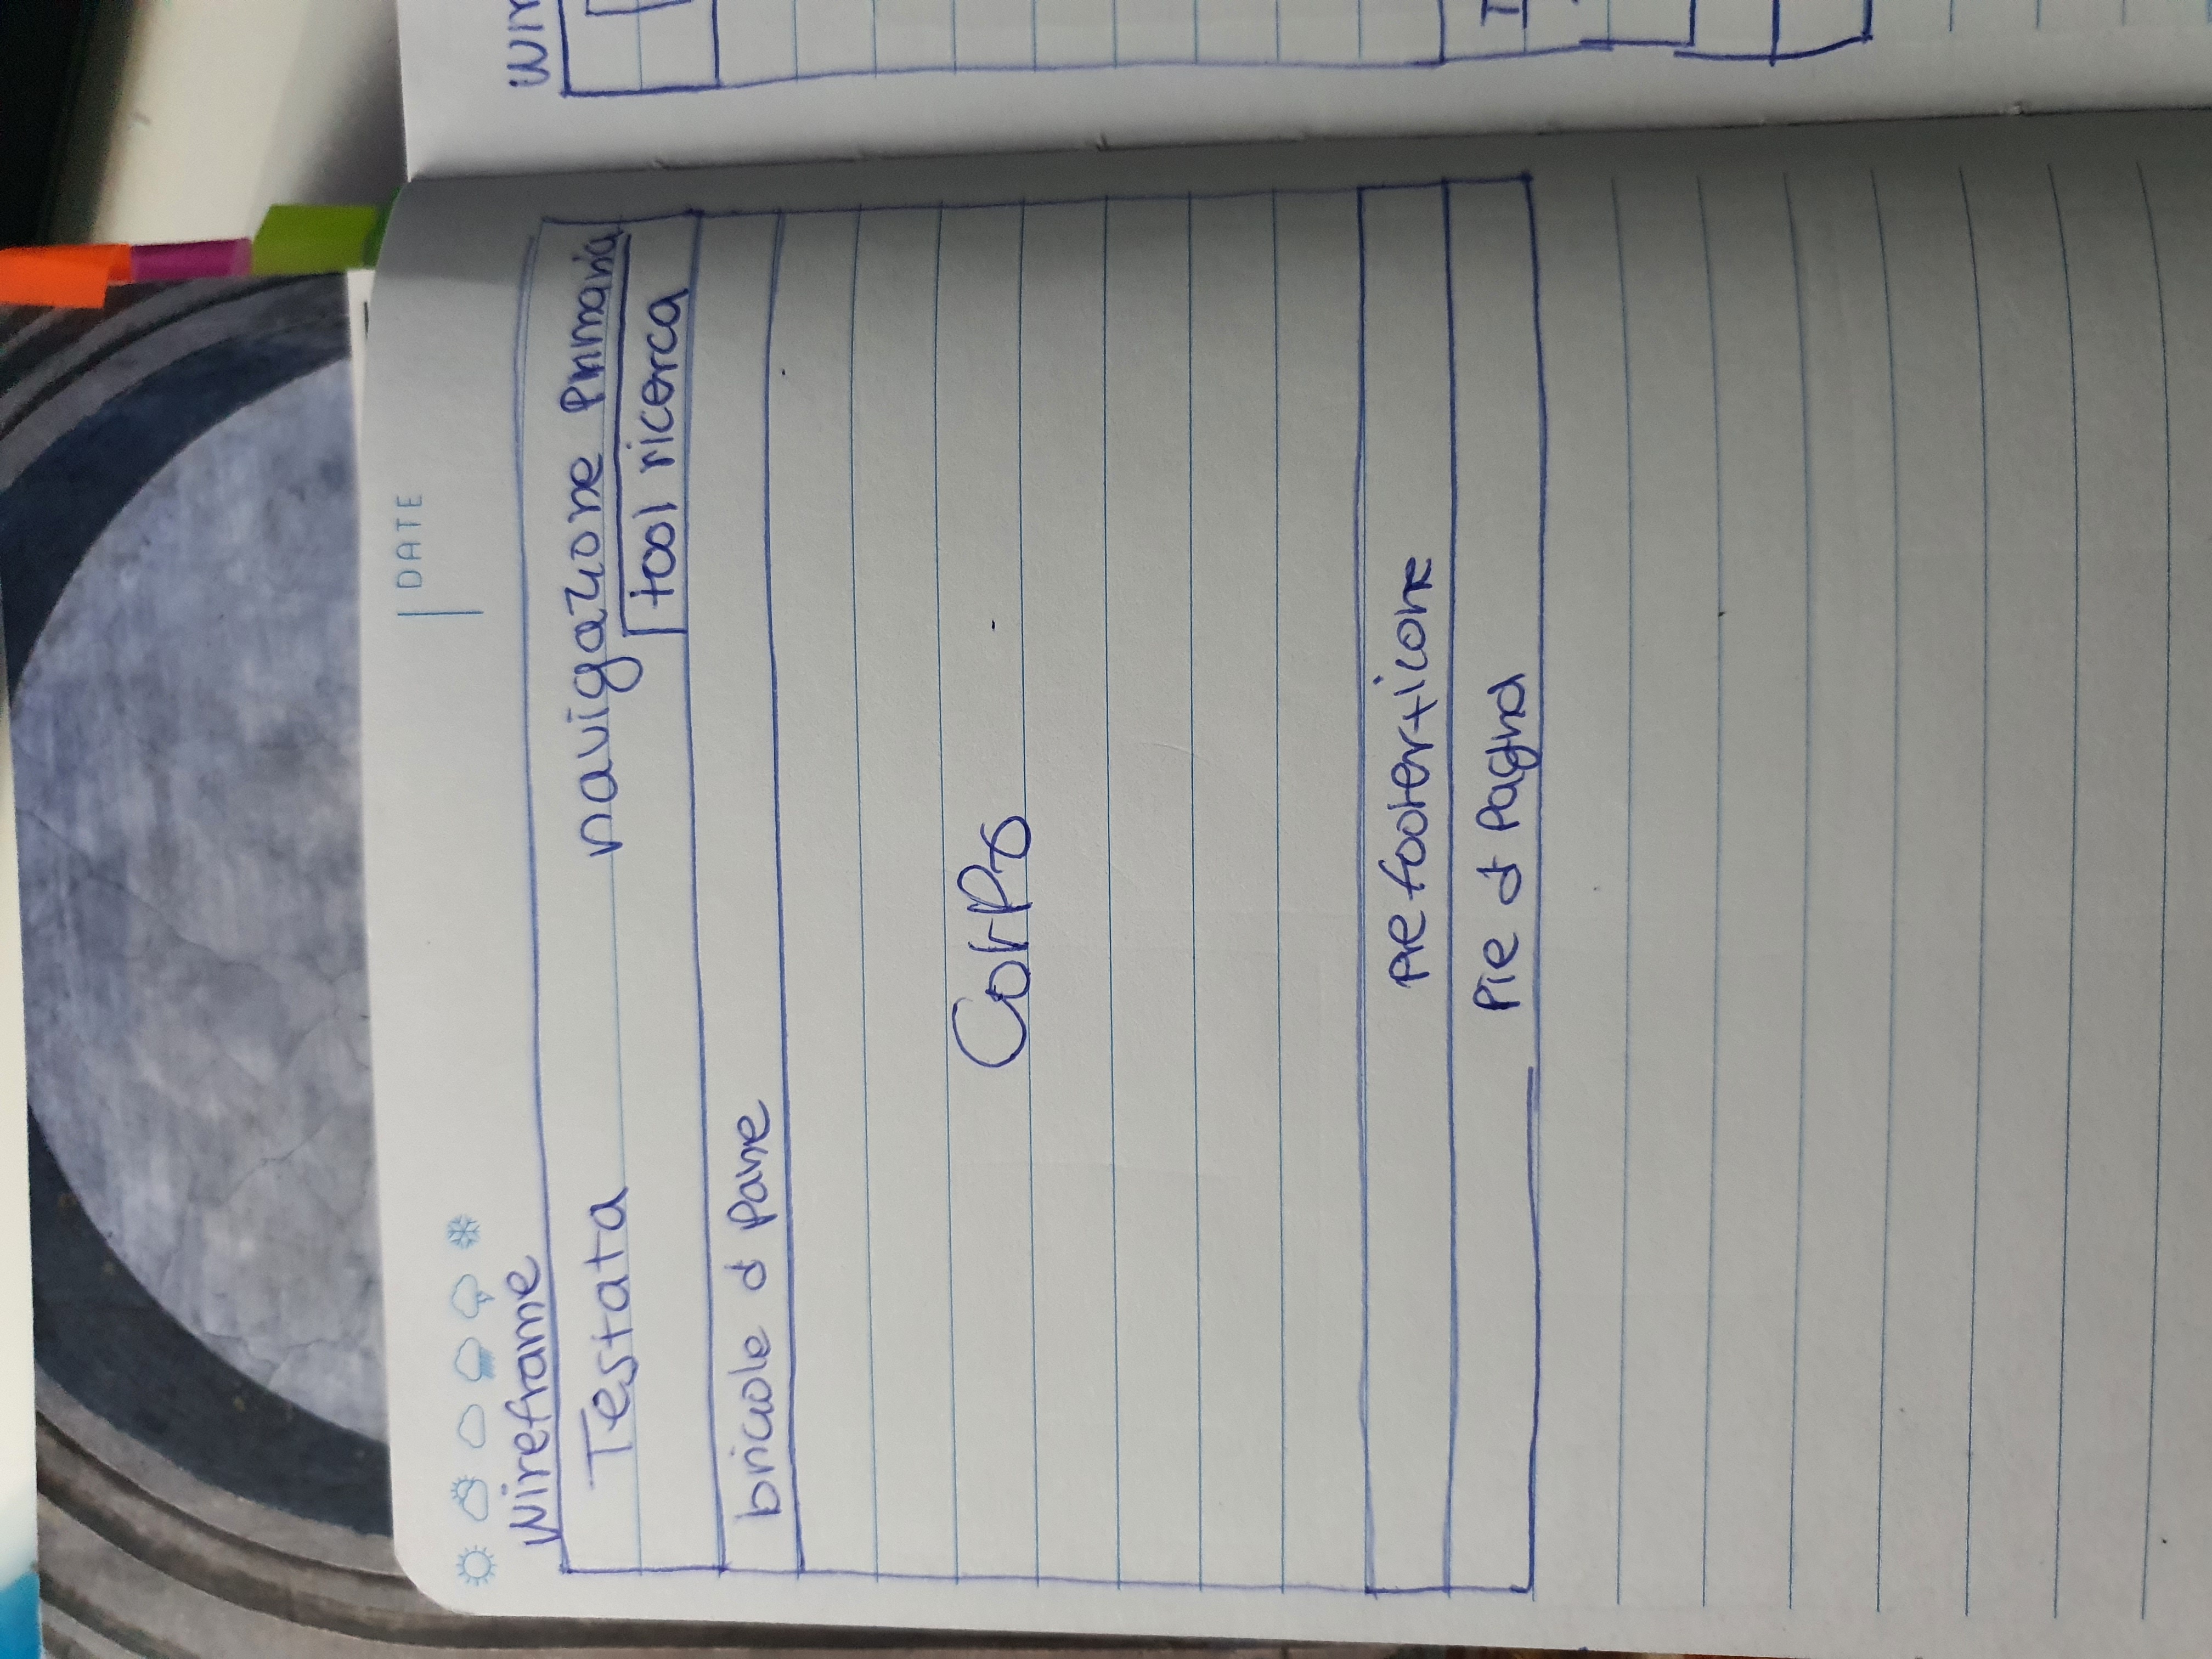 DATE
Wireframe
Testata navigazione primaria
tool ricerca
bricole di pane
Corpo
Pre footer+icone
Pie di Pagina